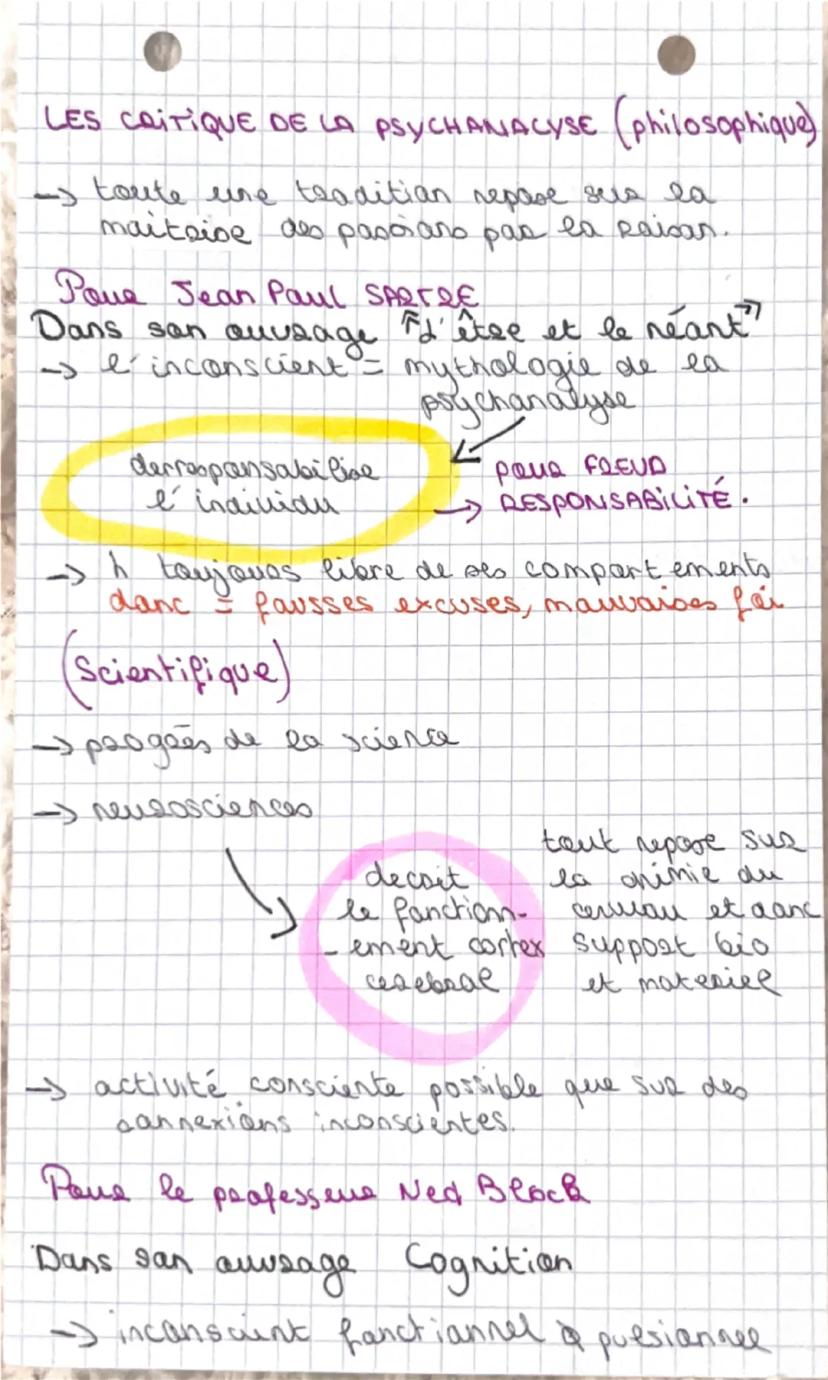 LES CRITIQUE DE LA PSYCHANALYSE (philosophique)
→ toute une tradition repose sur la
maitrise des passions par la raison.
Pour Jean Paul SARTRE
Dans son ouvrage "l'être et le néant"
→ l'inconscient = mythologie de la
psychanalyse
derresponsabilise
l'individu
pour FREUD
→ RESPONSABILITÉ.
→ h toujours libre de ses comportements
donc = fausses excuses, mauvaises foi
(Scientifique)
→ progrès de la science
→ neurosciences
decrit
le fonction-
-ement cortex
cerebral
tout repose sur
la chimie du
cerveau et donc
support bio
et materiel
→ activité consciente possible que sur des
connexions inconscientes.
Pour le professeur Ned Block
Dans son ouvrage Cognition
→ inconscient fonctionnel pulsionnel